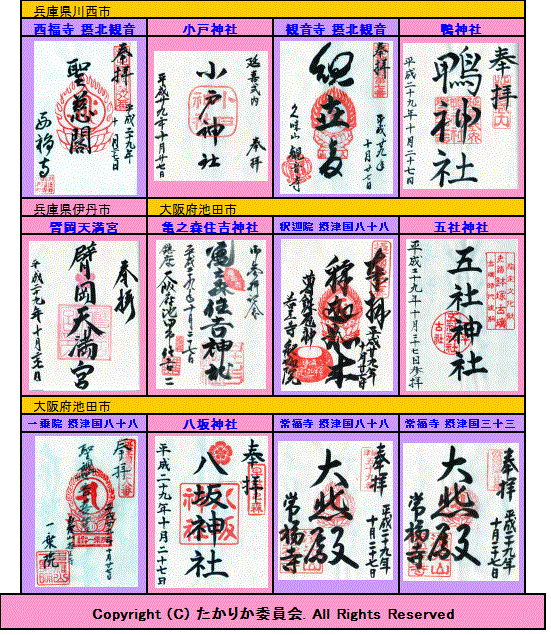 兵庫県川西市
西福寺 摂北観音
小戸神社
観音寺 摂北観音
鴨神社
奉拝
聖慈閣
平成二十九年
十月二十七日
西福寺
延喜式内
奉拝
小戸神社
平成廿九年十月廿七日
奉拝
平成廿九年
十月廿七日
観音寺
奉拝
鴨神社
平成二十九年十月二十七日
兵庫県伊丹市
大阪府池田市
臂岡天満宮
亀之森住吉神社
釈迦院 摂津国八十八
五社神社
奉拝
臂岡天満宮
亀之森住吉神社
奉拝
釈迦如来
釈迦院
五社神社
大阪府池田市
一乗院 摂津国八十八
八坂神社
常福寺 摂津国八十八
常福寺 摂津国三十三
奉拝
一乗院
奉拝
八坂神社
平成二十九年十月二十七日
奉拝
大悲殿
平成二十九年
十月二十七日
常福寺
奉拝
大悲殿
平成二十九年
十月二十七日
常福寺
Copyright (C) たかりか委員会. All Rights Reserved